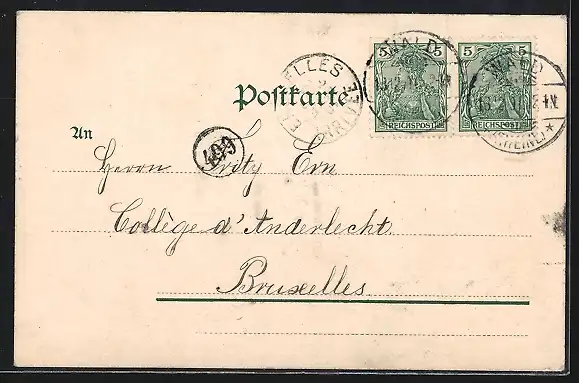 5 5 5 5
REICHSPOST REICHSPOST
WALD
WALD
(RHEINL) *
Postkarte
An
409
Herrn Fritz Ern
Collège d'Anderlecht
Bruxelles